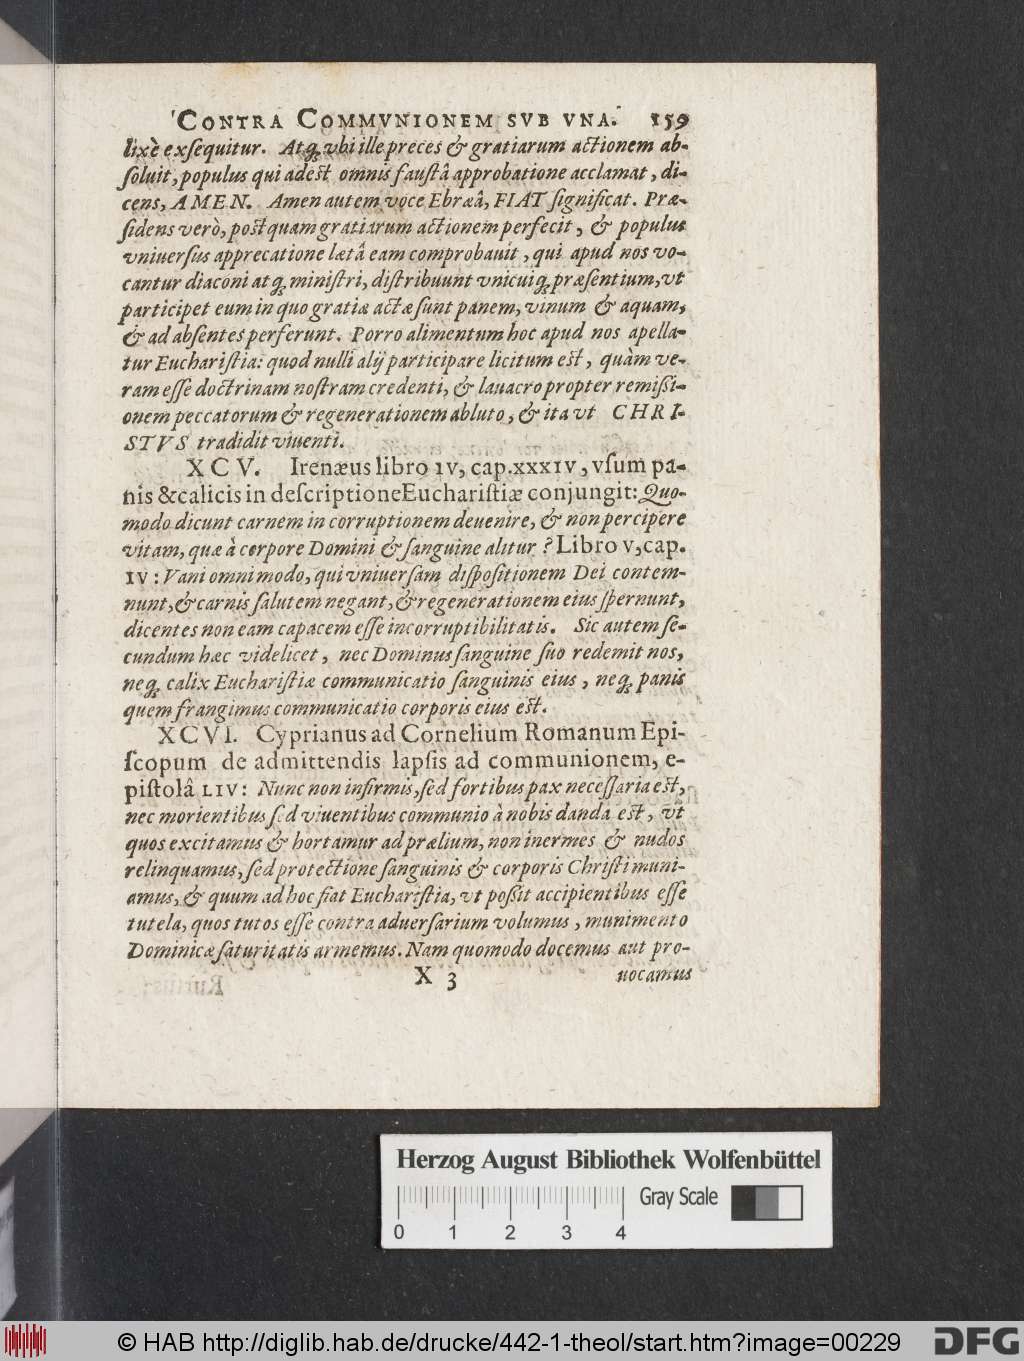 CONTRA COMMVNIONEM SVB VNA. 159
lixè exsequitur. Atq; vbi ille preces & gratiarum actionem ab-
ſoluit, populus qui adest omnis fauſtâ approbatione acclamat, di-
cens, AMEN. Amen autem voce Ebræâ, FIAT ſignificat. Præ-
ſidens verò, postquam gratiarum actionem perfecit, & populus
vniuerſus apprecatione lætâ eam comprobauit, qui apud nos vo-
cantur diaconi atq; miniſtri, diſtribuunt vnicuiq; præſentium, vt
participet eum in quo gratiæ actæ ſunt panem, vinum & aquam,
& ad abſentes perferunt. Porro alimentum hoc apud nos apella-
tur Euchariſtia: quod nulli alij participare licitum est, quàm ve-
ram eſſe doctrinam noſtram credenti, & lauacro propter remißi-
onem peccatorum & regenerationem abluto, & ita vt CHRI-
STVS tradidit viuenti.
XCV. Irenæus libro IV, cap. XXXIV, vſum pa-
nis & calicis in deſcriptione Euchariſtiæ conjungit: Quo-
modo dicunt carnem in corruptionem deuenire, & non percipere
vitam, quæ à corpore Domini & ſanguine alitur? Libro V, cap.
IV: Vani omnimodo, qui vniuerſam diſpoſitionem Dei contem-
nunt, & carnis ſalutem negant, & regenerationem eius ſpernunt,
dicentes non eam capacem eſſe incorruptibilitatis. Sic autem ſe-
cundum hæc videlicet, nec Dominus ſanguine ſuo redemit nos,
neq; calix Euchariſtiæ communicatio ſanguinis eius, neq; panis
quem frangimus communicatio corporis eius est.
XCVI. Cyprianus ad Cornelium Romanum Epi-
ſcopum de admittendis lapſis ad communionem, e-
piſtolâ LIV: Nunc non infirmis, ſed fortibus pax neceſſaria est,
nec morientibus ſed viuentibus communio à nobis danda est, vt
quos excitamus & hortamur ad prælium, non inermes & nudos
relinquamus, ſed protectione ſanguinis & corporis Chriſti muni-
amus, & quum ad hoc fiat Euchariſtia, vt poßit accipientibus eſſe
tutela, quos tutos eſſe contra aduerſarium volumus, munimento
Dominicæ ſaturitatis armemus. Nam quomodo docemus aut pro-
X 3 uocamus
Herzog August Bibliothek Wolfenbüttel
Gray Scale
0 1 2 3 4
© HAB http://diglib.hab.de/drucke/442-1-theol/start.htm?image=00229 DFG